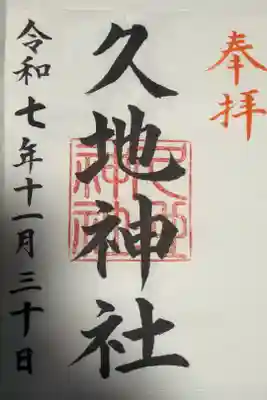 奉拝
久地神社
令和七年十一月三十日